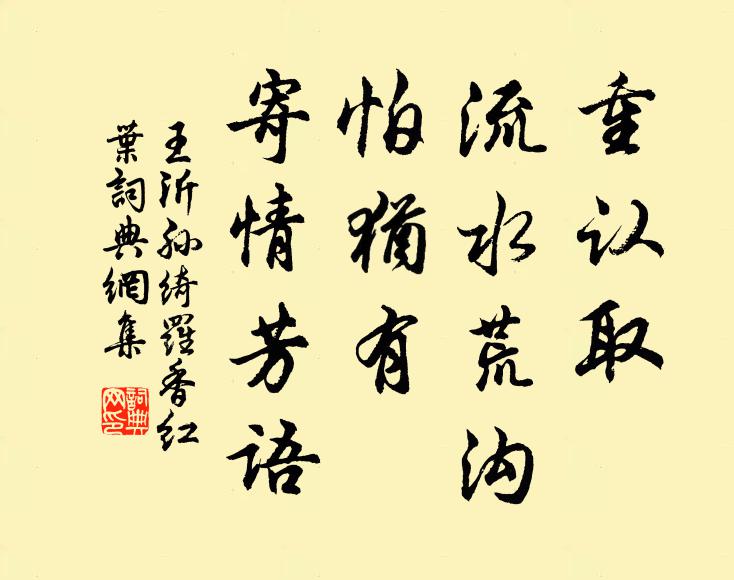 重认取
流水荒沟
怕猶有
寄情芳语
王沂孙绮羅香红
葉詞典網集
詞典网印